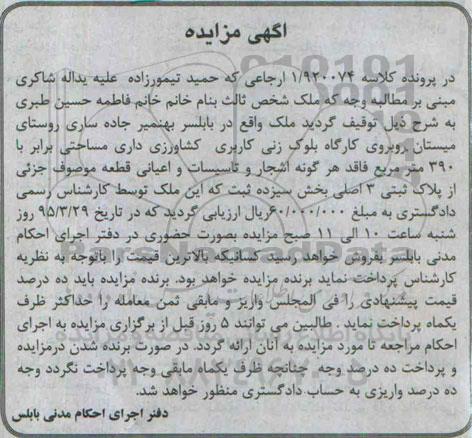 آگهی مزایده
در پرونده کلاسه ۱/۹۲۰۰۷۴ ارجاعی که حمید تیمورزاده علیه یداله شاکری
مبنی بر مطالبه وجه که ملک شخص ثالث بنام خانم خانم فاطمه حسین طبری
به شرح ذیل توقیف گردید ملک واقع در بابلسر بهنمیر جاده ساری روستای
میستان روبروی کارگاه بلوک زنی کاربری کشاورزی داری مساحتی برابر با
۳۹۰ متر مربع فاقد هر گونه اشجار و تاسیسات و اعیانی قطعه موصوف جزئی
از پلاک ثبتی ۳ اصلی بخش سیزده ثبت که این ملک توسط کارشناس رسمی
دادگستری به مبلغ ۶۰/۰۰۰/۰۰۰ریال ارزیابی گردید که در تاریخ ۹۵/۳/۲۹ روز
شنبه ساعت ۱۰ الی ۱۱ صبح مزایده بصورت حضوری در دفتر اجرای احکام
مدنی بابلسر بفروش خواهد رسید کسانیکه بالاترین قیمت را باتوجه به نظریه
کارشناس پرداخت نماید برنده مزایده خواهد بود. برنده مزایده باید ده درصد
قیمت پیشنهادی را فی المجلس واریز و مابقی ثمن معامله را حداکثر ظرف
یکماه پرداخت نماید . طالبین می توانند ۵ روز قبل از برگزاری مزایده به اجرای
احکام مراجعه تا مورد مزایده به آنان ارائه گردد. در صورت برنده شدن درمزایده
و پرداخت ده درصد وجه چنانچه ظرف یکماه مابقی وجه پرداخت نگردد وجه
ده درصد واریزی به حساب دادگستری منظور خواهد شد.
دفتر اجرای احکام مدنی بابلس